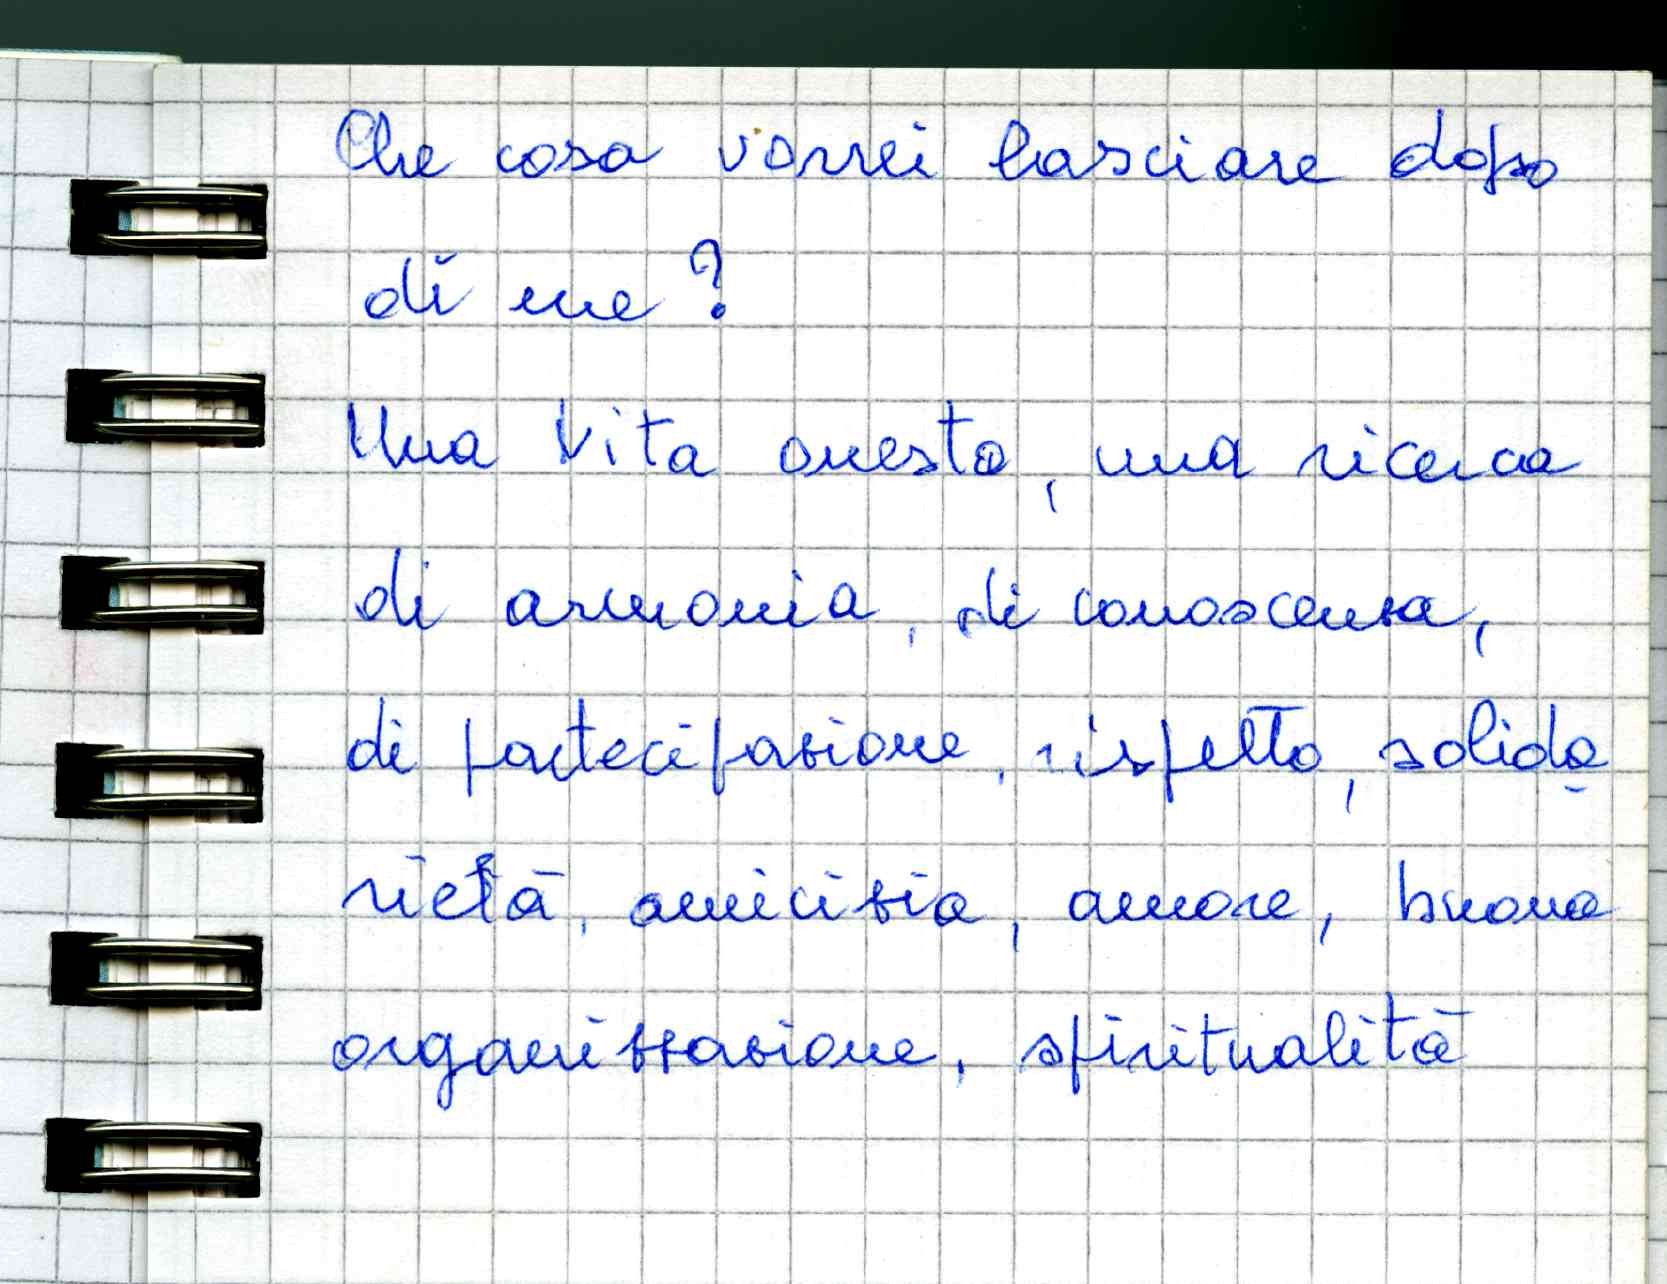 Che cosa vorrei lasciare dopo
di me?
Una Vita onesta, una ricerca
di armonia, di conoscenza,
di partecipazione, rispetto, solida
rietà, amicizia, amore, buona
organizzazione, spiritualità